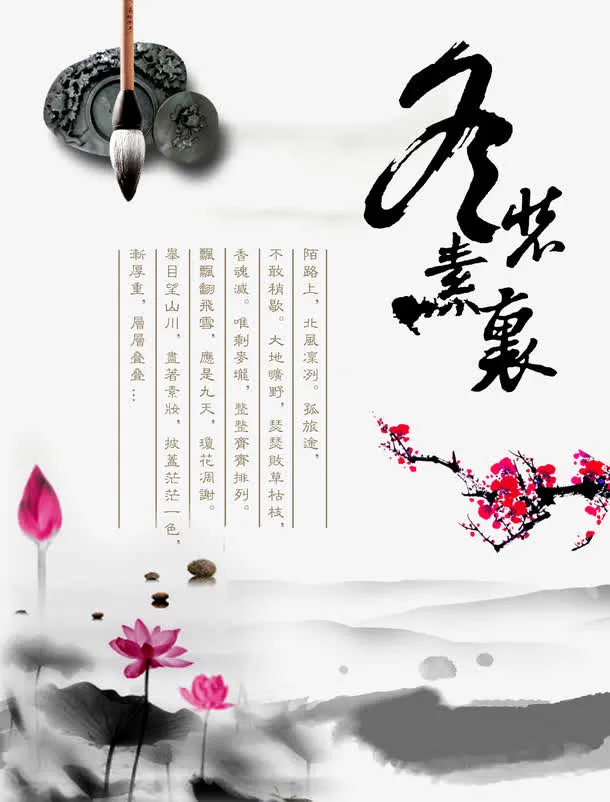 冬裝素裏
陌路上，北風凜冽。孤旅途，
不敢稍歇。大地曠野，瑟瑟敗草枯枝，
香魂滅。唯剩麥壠，整整齊齊排列。
飄飄翻飛雪，應是九天，瓊花凋謝。
舉目望山川，盡著素妝，披蓋茫茫一色，
漸厚重，層層叠叠…